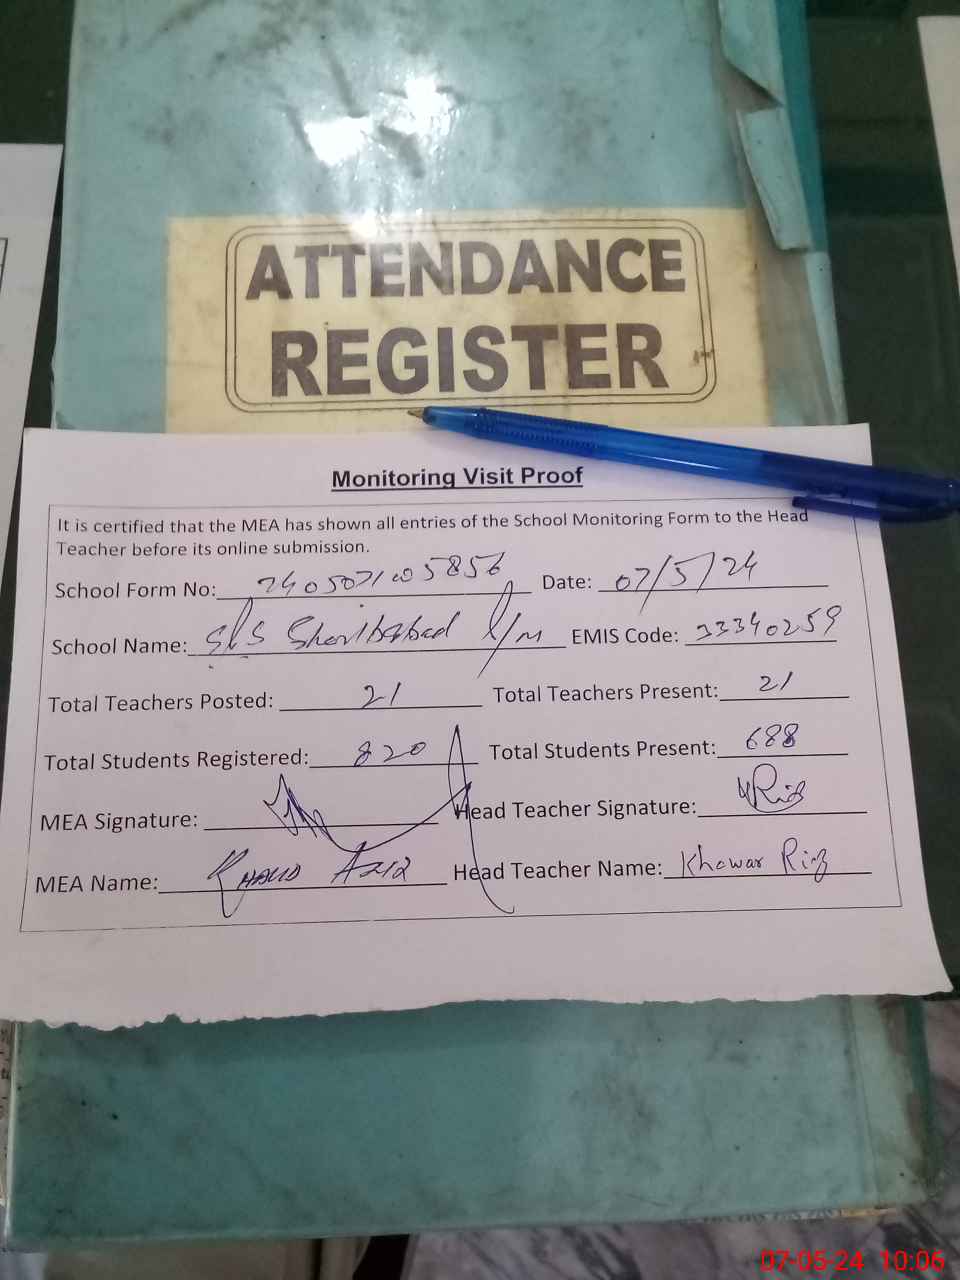 ATTENDANCE
REGISTER
Monitoring Visit Proof
It is certified that the MEA has shown all entries of the School Monitoring Form to the Head
Teacher before its online submission.
School Form No: 240507105856 Date: 07/5/24
School Name: EMIS Code: 33340259
Total Teachers Posted: 21 Total Teachers Present: 21
Total Students Registered: 820 Total Students Present: 688
MEA Signature: Head Teacher Signature:
MEA Name: Khalid Aziz Head Teacher Name: Khawar
07-05-24 10:06